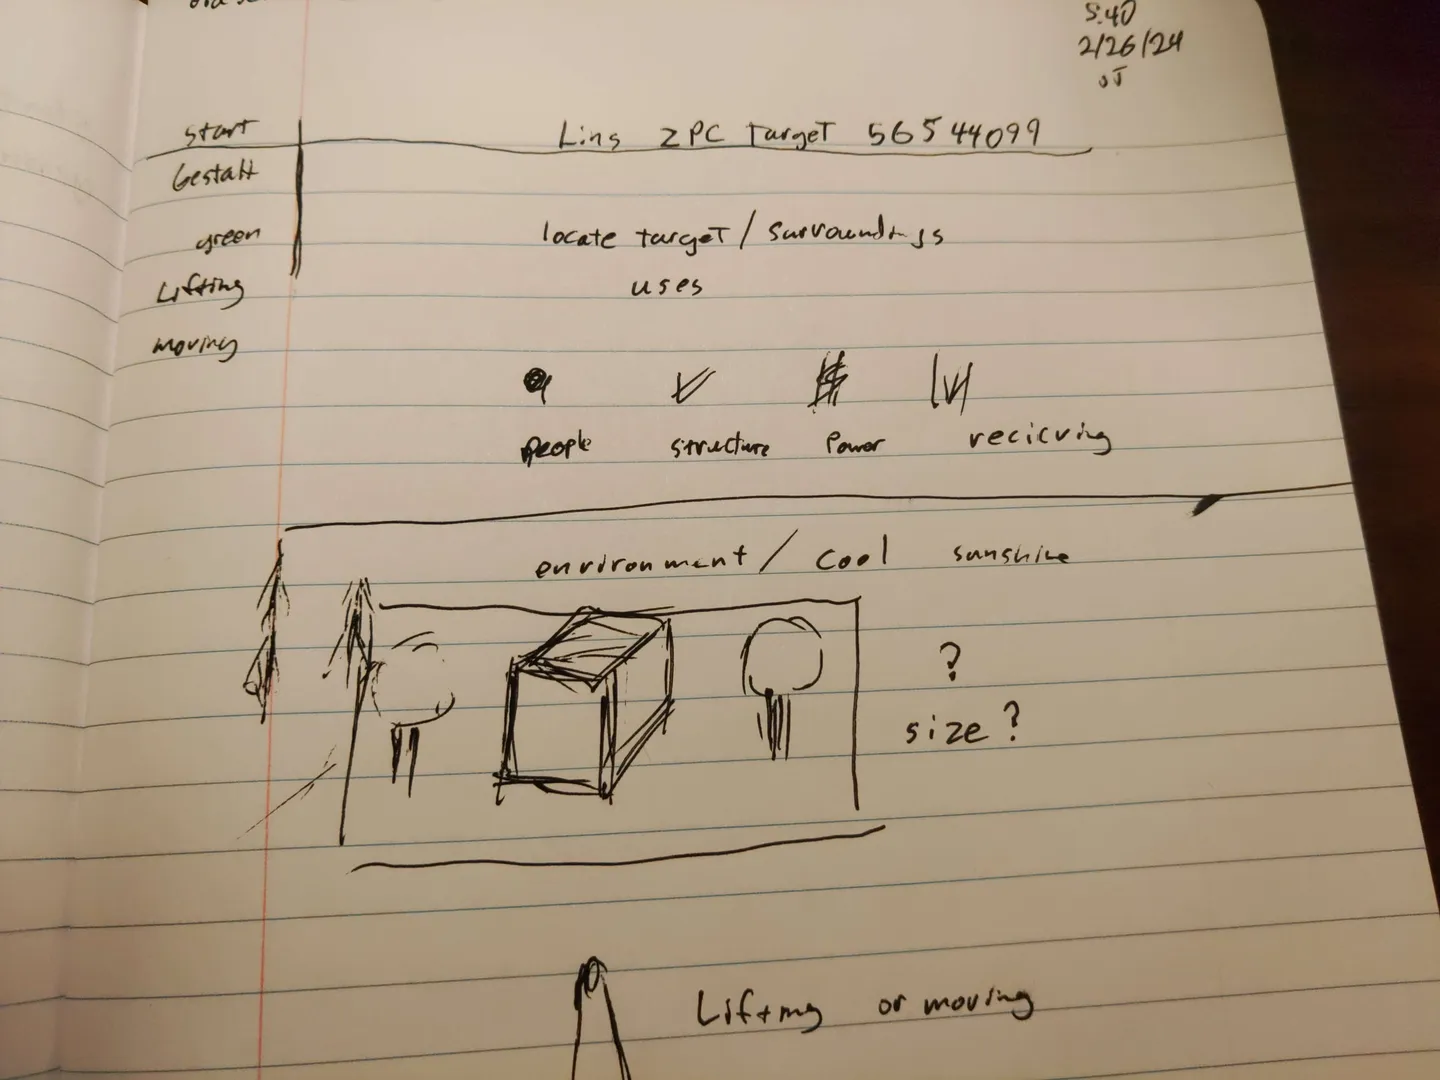 5:40
2/26/24
start
Gestalt
green
Lifting
moving
Target 56544099
locate target / surroundings
uses
people structure Power recieving
environment / cool sunshine
?
size ?
Lifting or moving